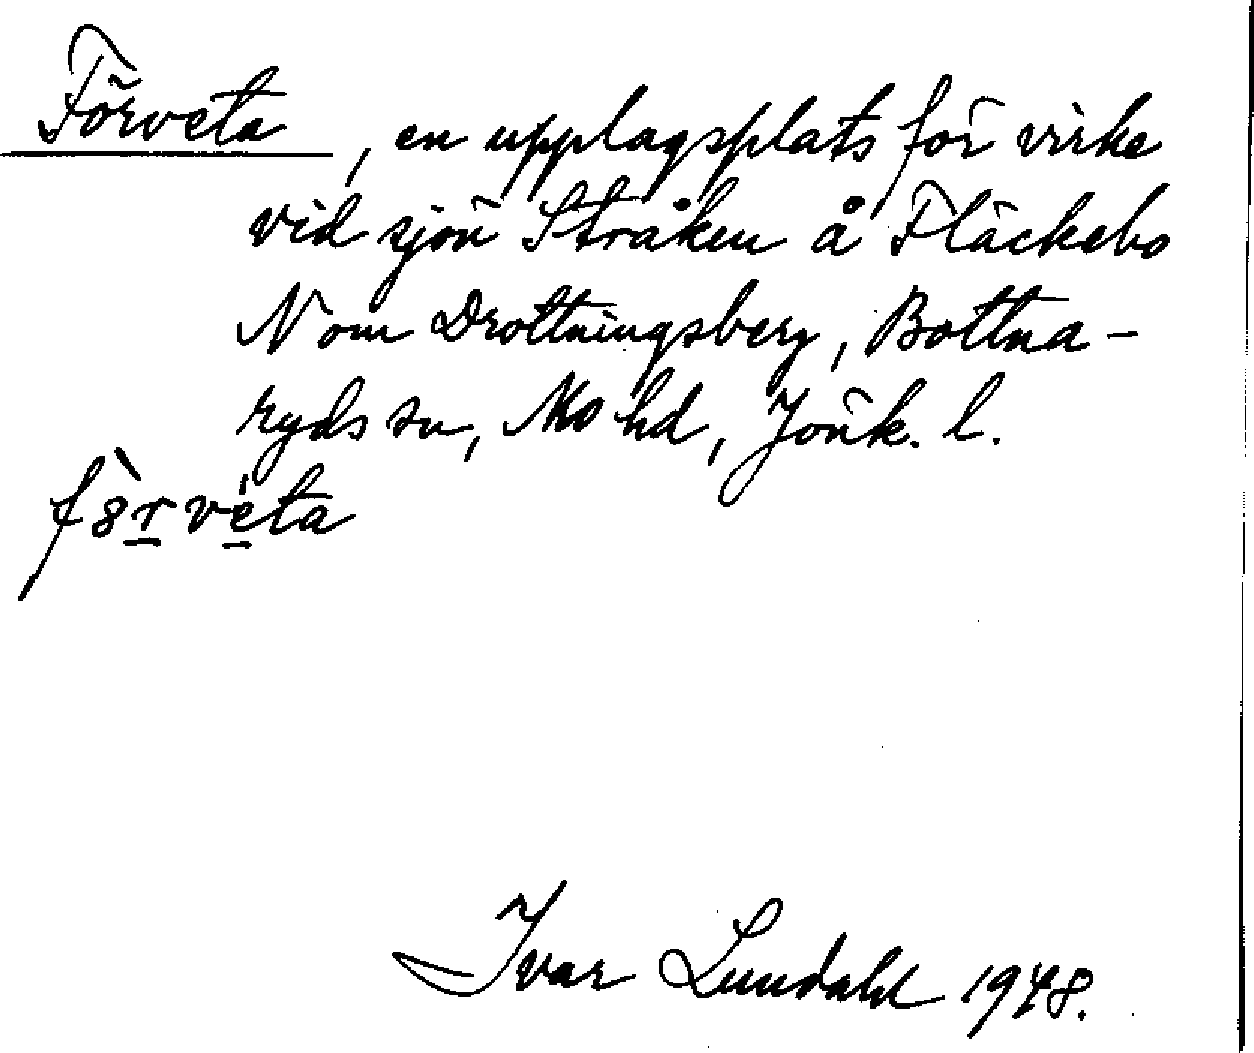 Förveta, en upplagsplats för virke
vid sjön Stråken å Fläckebo
N om Drottningsberg, Bottna-
ryds sn, Mo hd, Jönk. l.
fȣ̀rvéta
Ivar Lundahl 1948.